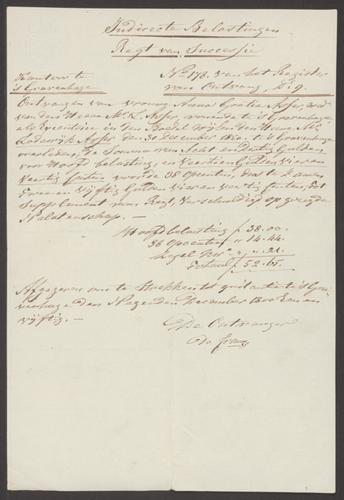 Indirecte Belastingen
Regt van Successie
Kantoor te
's Gravenhage
No. 178. van het Register
van Ontvang, D. 9.
Ontvangen van vrouwe Anna Gratia
van den Heere Mr. L. wonende te 's Gravenhage
als Executrice in den Boedel van den Heere Mr.
Lodewijk den 31 December 1850 te 's Gravenhage
overleden, de Somma van Acht en dertig Gulden,
voor Hoofd belasting, en Veertien Gulden vier en
veertig Centen, voor de 38 Opcenten, dus te zamen
Twee en vijftig Gulden vier en veertig Centen, als
Supplement van Regt, verschuldigd op gezegde
Nalatenschap. —
Hoofdbelasting f 38.00.
38 Opcenten " 14.44.
Zegel " ". 21.
Totaal f 52.65.
Afgegeven om te Strekken tot quitantie te 's Gra-
venhage den December 1800 Een en
vijftig. —
De Ontvanger